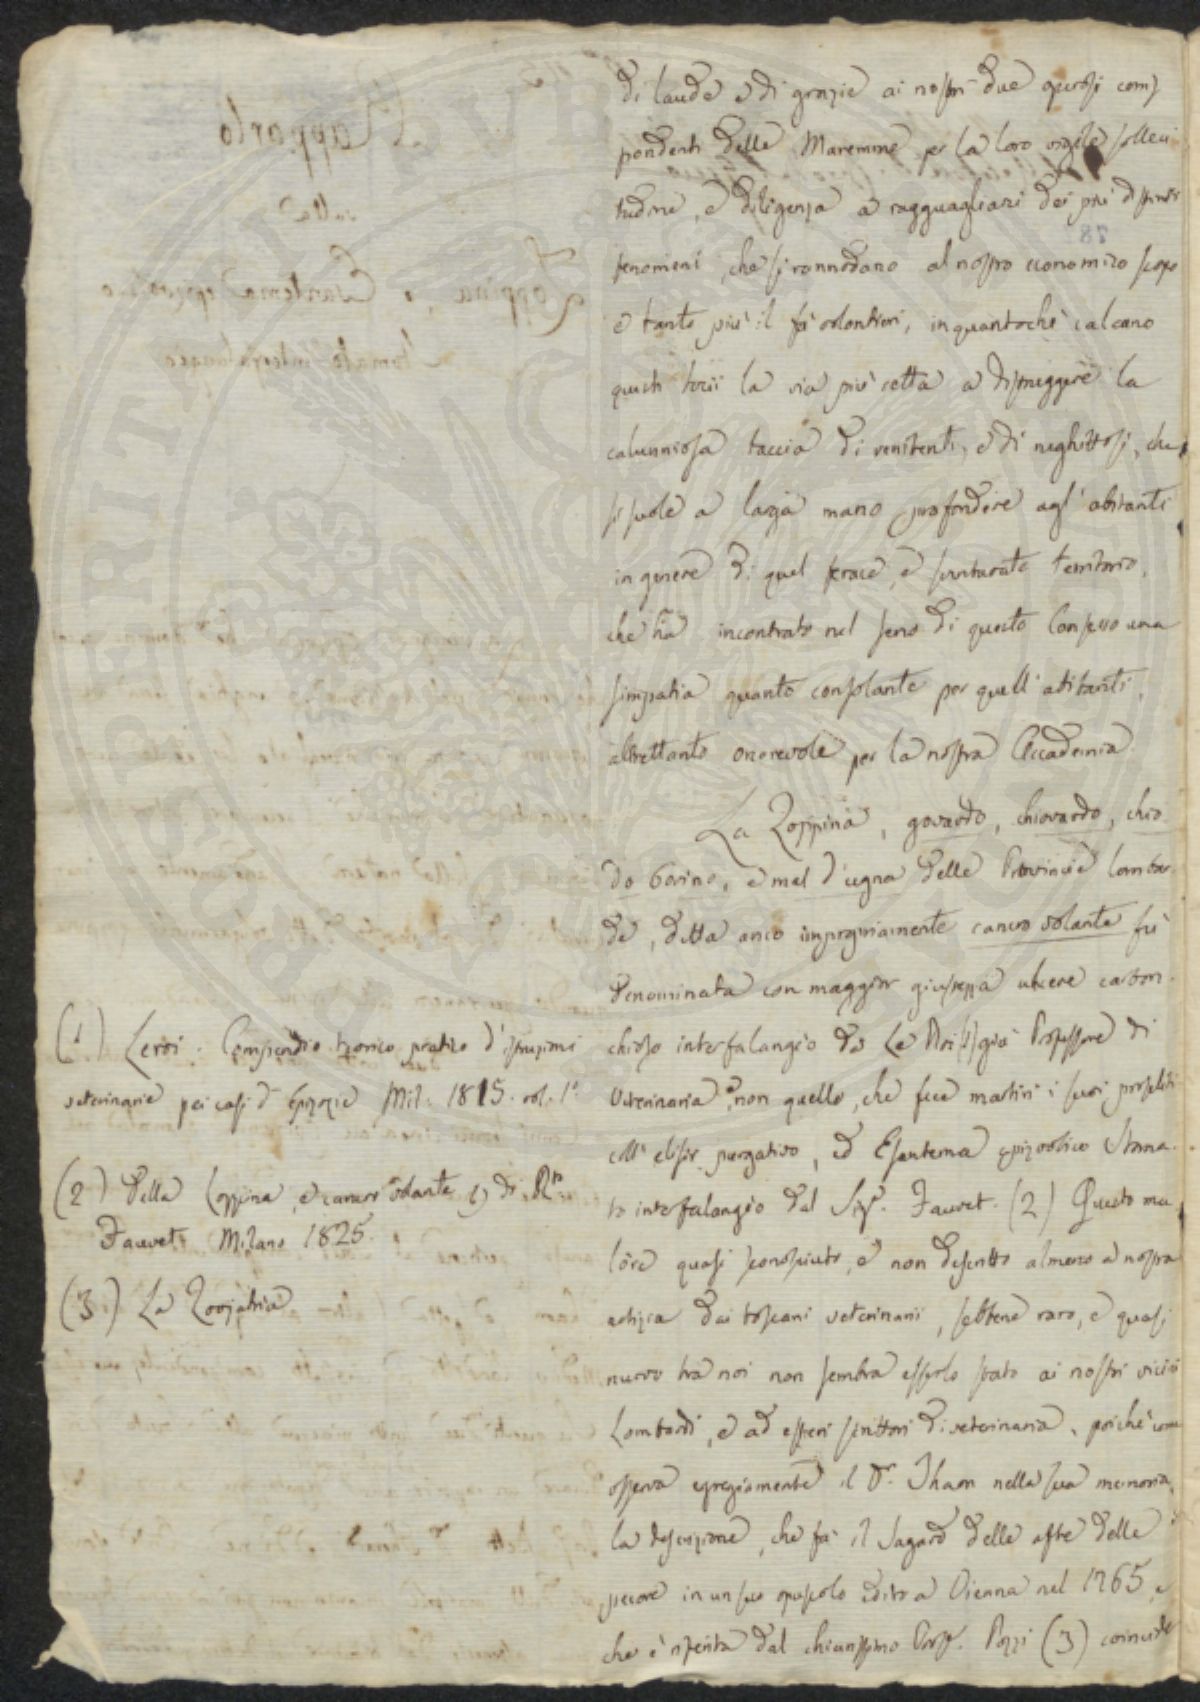 di laude e di grazie ai nostri due operosi corris
pondenti delle Maremme per la loro vigile solleci
tudine, e diligenza a ragguagliarci dei più distinti
fenomeni, che si rannodano al nostro economico scopo
e tanto più il fò volontieri, inquantochè calcano
questi la via più retta a distruggere la
calunniosa taccia di renitenti, e di neghittosi, che
si suole a larga mano profondere agl'abitanti
in genere di quel ferace, e sventurato territorio,
che ha incontrato nel seno di questo Consesso una
simpatia quanto consolante per quelli abitanti,
altrettanto onorevole per la nostra Accademia.
La Zoppina, govardo, chiovardo, chio
do bovino, e mal d'ugna delle Provincie lombar
de, detta anco impropriamente cancro volante fù
denominata con maggior giustezza ulcere carbon-
chioso interfalangio da Le Roi (1) già Professore di
Veterinaria, e non quello, che fece martiri i suoi proseliti
coll'elisir purgativo, ed Esantema epizootico stoma-
to interfalangio dal Sigr. Fauvet. (2) Questo ma
lore quasi sconosciuto, e non descritto almeno a nostra
notizia dai toscani veterinarii, sebbene raro, e quasi
nuovo tra noi non sembra esserlo stato ai nostri vicini
Lombardi, e ad esteri scrittori di veterinaria, poichè come
osserva egregiamente il Dr. Thaon nella sua memoria,
la descrizione, che fa il Sagard delle afte delle
pecore in un suo opuscolo edito a Vienna nel 1765, e
che è riferita dal chiarissimo Profr. Pozzi (3) coincide
(1) Leroi. Compendio teorico pratico d'istruzioni
veterinarie pei casi d'Epizozie Mil. 1815. vol. 1°
(2) Della Zoppina, e cancro volante di Rto
Fauvet. Milano 1825.
(3) La Zoojatria